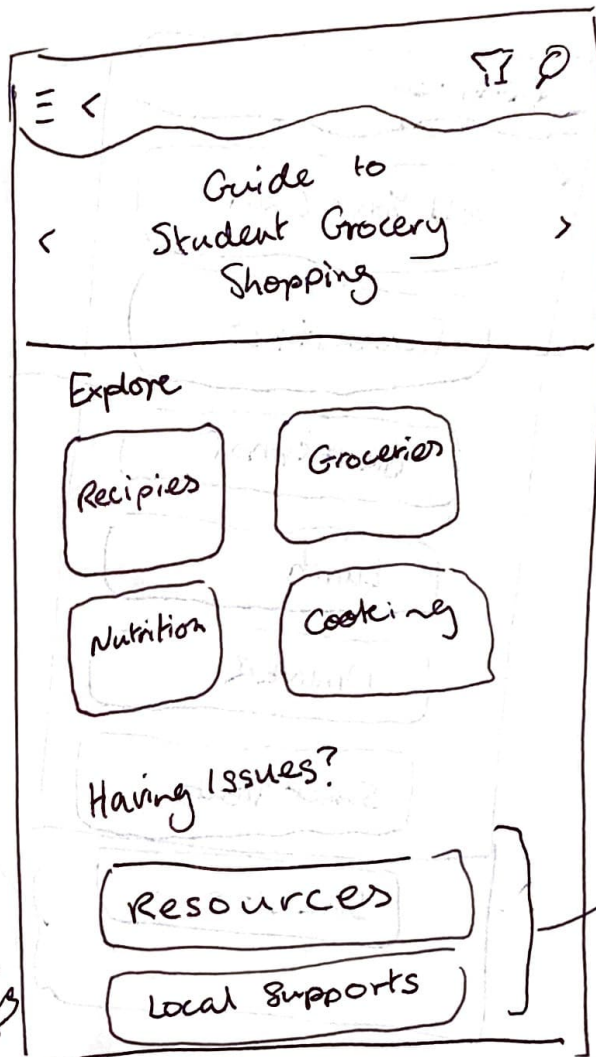 Guide to
Student Grocery
Shopping
Explore
Recipies
Groceries
Nutrition
Cooking
Having Issues?
Resources
Local Supports